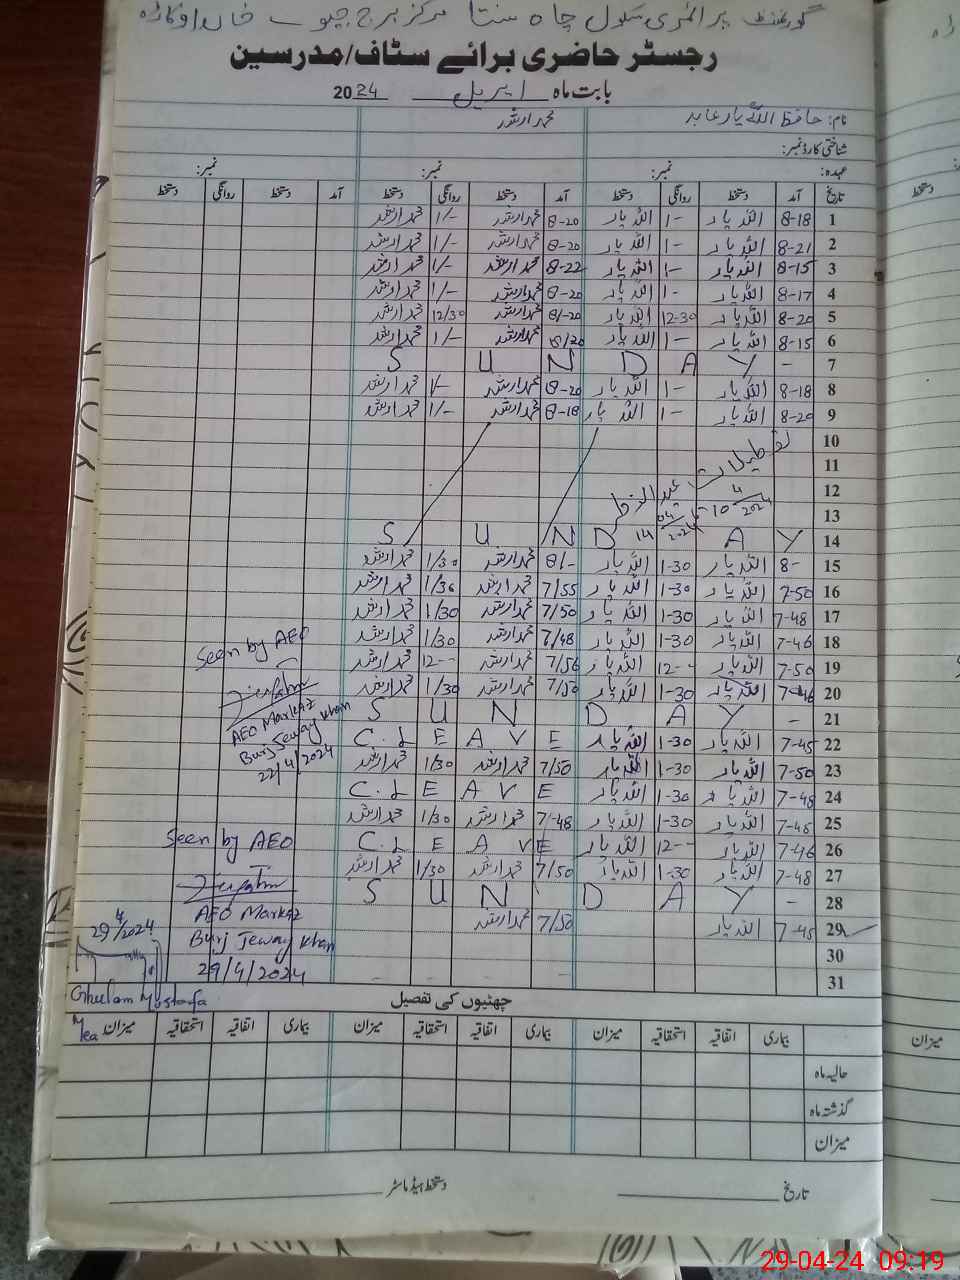 گورنمنٹ پرائمری سکول چاہ سنتا مرکز برج جیوے خاں اوکاڑہ
رجسٹر حاضری برائے سٹاف/مدرسین
بابت ماہ اپریل 2024
نام: حافظ اللہ یار عابد محمد ارشد
شناختی کارڈ نمبر:
عہدہ: نمبر: نمبر: نمبر:
تاریخ آمد دستخط روانگی دستخط آمد دستخط روانگی دستخط آمد دستخط روانگی دستخط
1 8-18 اللہ یار 1- اللہ یار 8-20 محمد ارشد 1/- محمد ارشد
2 8-21 اللہ یار 1- اللہ یار 8-20 محمد ارشد 1/- محمد ارشد
3 8-15 اللہ یار 1- اللہ یار 8-22 محمد ارشد 1/- محمد ارشد
4 8-17 اللہ یار 1- اللہ یار 8-20 محمد ارشد 1/- محمد ارشد
5 8-20 اللہ یار 12-30 اللہ یار 8/-20 محمد ارشد 12/30 محمد ارشد
6 8-15 اللہ یار 1- اللہ یار 8/20 محمد ارشد 1/- محمد ارشد
7 - SUNDAY
8 8-18 اللہ یار 1- اللہ یار 8-20 محمد ارشد 1/- محمد ارشد
9 8-20 اللہ یار 1- اللہ یار 8-18 محمد ارشد 1/- محمد ارشد
10 تعطیلات عید الفطر
11
12 10-4-2024
13 14/04/2024
14 SUNDAY
15 8- اللہ یار 1-30 اللہ یار 8/- محمد ارشد 1/30 محمد ارشد
16 7-50 اللہ یار 1-30 اللہ یار 7/55 محمد ارشد 1/30 محمد ارشد
17 7-48 اللہ یار 1-30 اللہ یار 7/50 محمد ارشد 1/30 محمد ارشد
18 7-46 اللہ یار 1-30 اللہ یار 7/48 محمد ارشد 1/30 محمد ارشد
19 7-50 اللہ یار 12-- اللہ یار 7/50 محمد ارشد 12-- محمد ارشد
20 7-46 اللہ یار 1-30 اللہ یار 7/50 محمد ارشد 1/30 محمد ارشد
21 - SUNDAY
22 7-45 اللہ یار 1-30 اللہ یار C.LEAVE
23 7-50 اللہ یار 1-30 اللہ یار 7/50 محمد ارشد 1/30 محمد ارشد
24 7-48 اللہ یار 1-30 اللہ یار C.LEAVE
25 7-46 اللہ یار 1-30 اللہ یار 7/-48 محمد ارشد 1/30 محمد ارشد
26 7-46 اللہ یار 12-- اللہ یار C.LEAVE
27 7-48 اللہ یار 1-30 اللہ یار 7/50 محمد ارشد 1/30 محمد ارشد
28 - SUNDAY
29 7-45 اللہ یار 7/50 محمد ارشد
30
31
Seen by AEO
AEO Markaz
Burj Jeway Khan
22/4/2024
Seen by AEO
AEO Markaz
Burj Jeway Khan
29/4/2024
29/4/2024
Ghulam Mustafa
Mea
چھٹیوں کی تفصیل
بیماری اتفاقیہ استحقاقیہ میزان بیماری اتفاقیہ استحقاقیہ میزان بیماری اتفاقیہ استحقاقیہ میزان
حالیہ ماہ
گذشتہ ماہ
میزان
تاریخ دستخط ہیڈ ماسٹر
دستخط
میزان
29-04-24 09:19